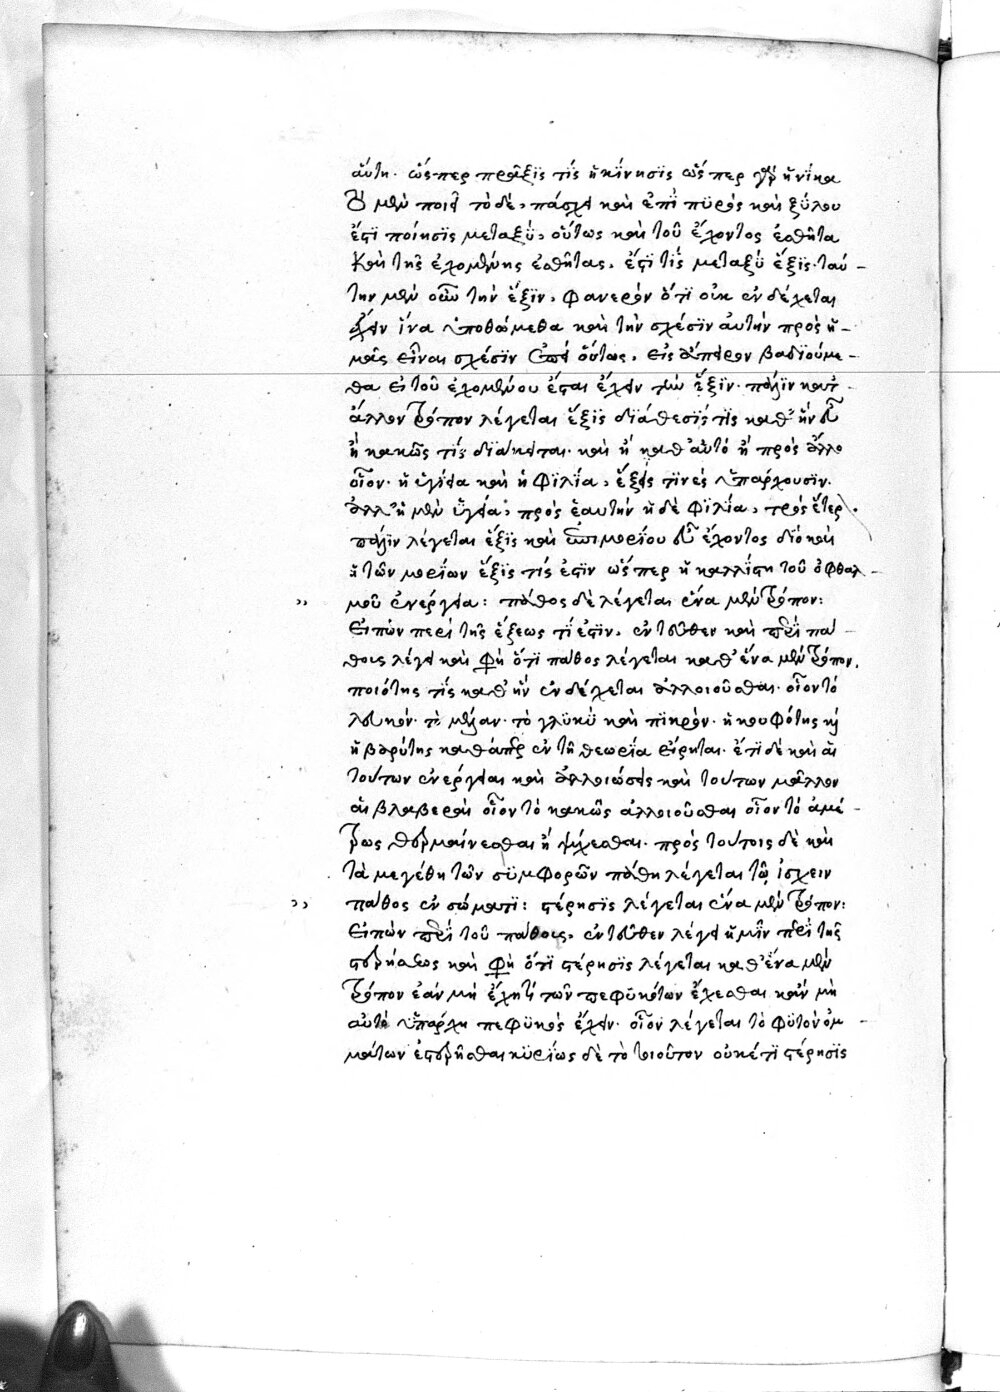 αὕτη· ὥσπερ πρᾶξϊς τίς ἢ κίνησϊς ὥσπερ γὰρ ἡνίκα
τὸ μὲν ποιεῖ τὸ δὲ, πάσχει καὶ ἐπῒ πϋρὸς καὶ ξύλου
ἐστῒ ποίησϊς μεταξὺ, οὕτως καὶ τοῦ ἔχοντος ἐσθῆτα
καὶ τῆς ἐχομένης ἐσθῆτας, ἐστῒ τῒς μεταξὺ ἕξις· ταύ-
την μὲν οὖν τὴν ἕξϊν, φανερὸν ὅτϊ οὐκ ἐνδέχεται
ἔχειν ἵνα ὑποθώμεθα καὶ τὴν σχέσϊν αὐτὴν πρὸς ἡ-
μᾶς εἶναι σχέσϊν ἐπεὶ οὕτως, εἰς ἄπειρον βαδϊούμε-
θα εἰ τοῦ ἐχομένου ἔσται ἔχειν τὴν ἕξϊν· πάλϊν κατ'
ἄλλον τρόπον λέγεται ἕξϊς δϊάθεσϊς τϊς καθ' ἣν εὖ
ἢ κακῶς τίς δϊάκειται· καὶ ἢ καθ' αὑτὸ ἢ πρὸς ἄλλο
οἷον· ἡ ὑγίεια καὶ ἡ φϊλΐα, ἕξεις τϊνές ὑπάρχουσϊν·
ἀλλ' ἡ μὲν ὑγεία, πρὸς ἑαυτὴν ἡ δὲ φϊλία, πρὸς ἕτερον·
πάλϊν λέγεται ἕξϊς καὶ ἐπὶ μορίου εὖ ἔχοντος διὸ καὶ
ἡ τῶν μορίων ἕξϊς τίς ἐστϊν ὥσπερ ἡ καλλίστη τοῦ ὀφθαλ-
μοῦ ἐνέργεια: πάθος δὲ λέγεται ἕνα μὲν τρόπον:
Εἰπὼν περὶ τῆς ἕξεως τί ἐστϊν, ἐντεῦθεν καὶ περὶ πά-
θους λέγει καὶ φησὶν ὅτϊ πάθος λέγεται καθ' ἕνα μὲν τρόπον,
ποιότης τίς καθ' ἣν ἐνδέχεται ἀλλοιοῦσθαι· οἷον τὸ
λευκὸν· τὸ μέλαν· τὸ γλϋκὺ καὶ πϊκρὸν· ἡ κουφότης καὶ
ἡ βαρύτης καθάπερ ἐν τῇ θεωρία εἴρηται· ἔτϊ δὲ καὶ αἱ
τούτων ἐνέργειαι καὶ ἀλλοιώσεις καὶ τούτων μᾶλλον
αἱ βλαβεραὶ οἷον τὸ κακῶς ἀλλοιοῦσθαι οἷον τὸ ἀμέ-
τρως θερμαίνεσθαι ἢ ψύχεσθαι· πρὸς τούτοις δὲ καὶ
τὰ μεγέθη τῶν σϋμφορῶν πάθη λέγεται τῷ ἰσχειν
πάθος ἐν σώματϊ: στέρησϊς λέγεται ἕνα μὲν τρόπον:
Εἰπὼν περὶ τοῦ πάθους, ἐντεῦθεν λέγει ἡμῖν περὶ τῆς
στερήσεως καὶ φησὶν ὅτϊ στέρησϊς λέγεται καθ' ἕνα μὲν
τρόπον ἐὰν μὴ ἔχη τϊ τῶν πεφϋκότων ἔχεσθαι κἂν μὴ
αὐτὸ ὑπάρχη πεφϋκὸς ἔχειν· οἷον λέγεται τὸ φϋτὸν ὀμ-
μάτων ἐστερῆσθαι κϋρίως δὲ τὸ τοιοῦτον οὐκέτϊ στέρησϊς